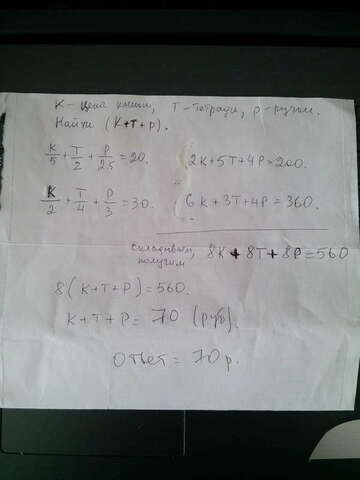 К - цена книги, Т - тетради, р - ручки.
Найти (К+Т+р).
К/5 + Т/2 + Р/2.5 = 20. 2К+5Т+4Р=200.
К/2 + Т/4 + Р/3 = 30. 6К+3Т+4Р=360.
складываем, получим 8К+8Т+8Р=560
8(К+Т+Р)=560.
К+Т+Р= 70 (руб).
Ответ = 70 р.